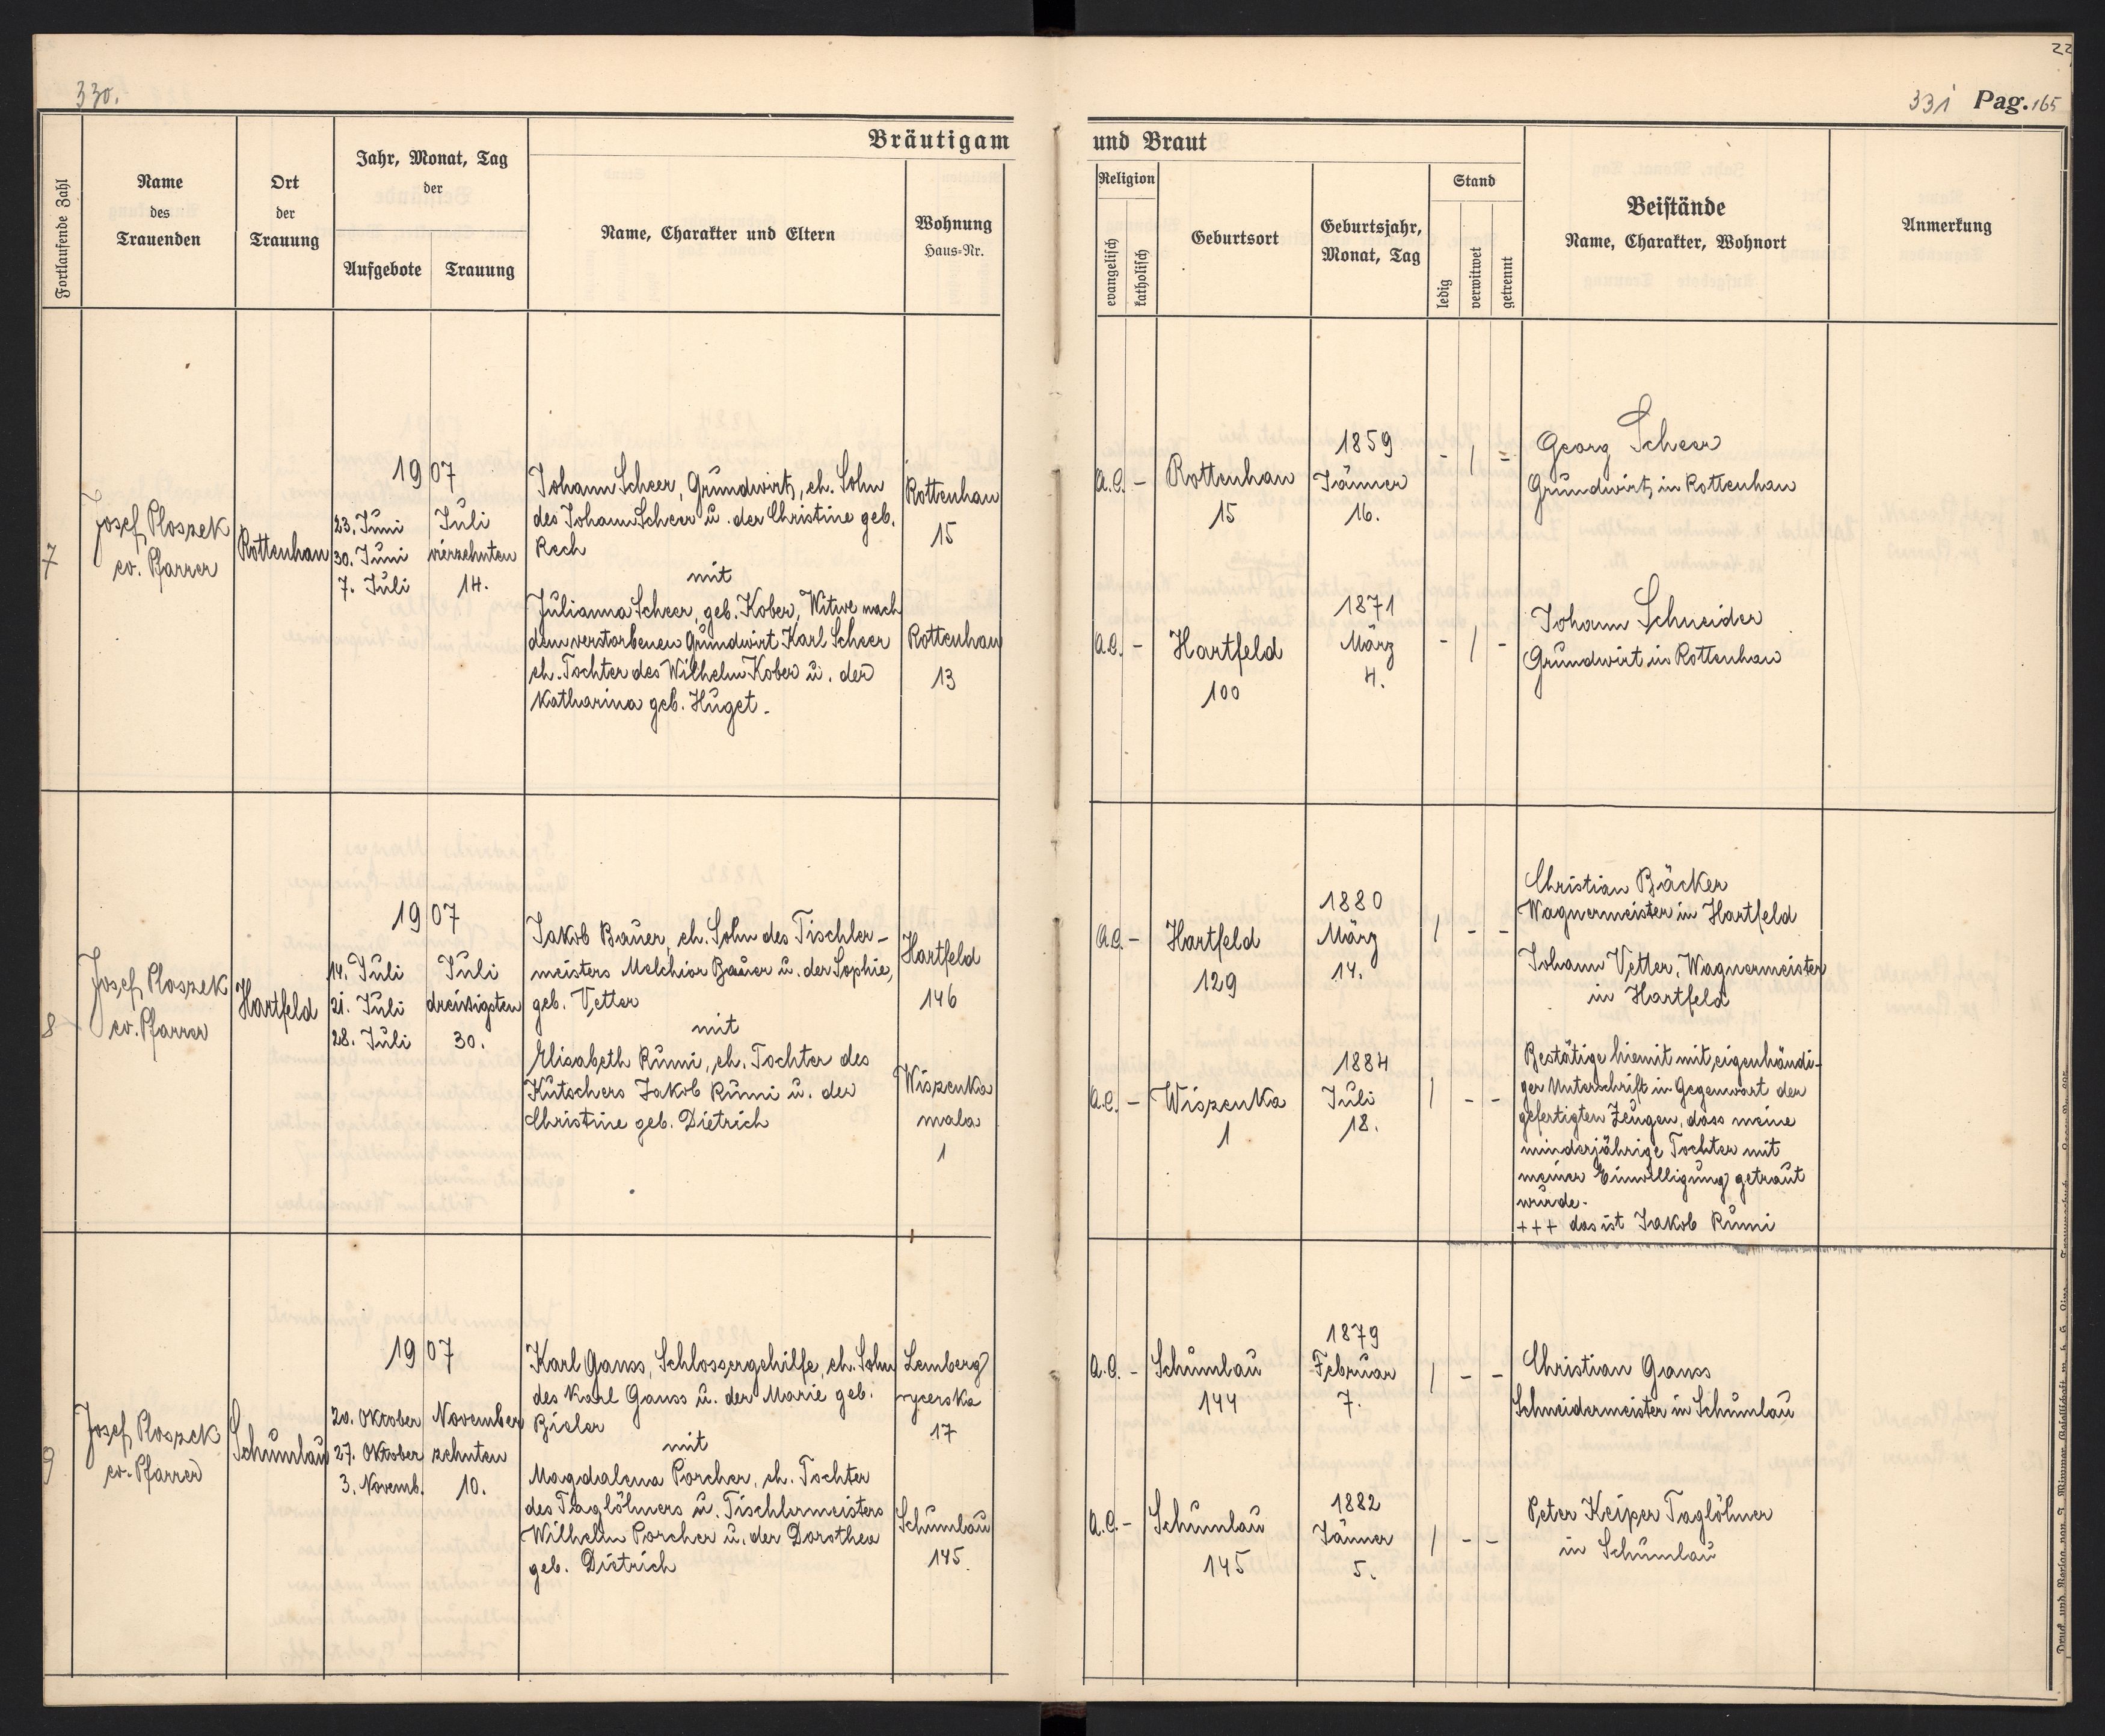 330.
22
331 Pag. 165
Bräutigam und Braut
Fortlaufende Zahl
Name
des
Trauenden
Ort
der
Trauung
Jahr, Monat, Tag
der
Aufgebote
Trauung
Name, Charakter und Eltern
Wohnung
Haus-Nr.
Religion
evangelisch
katholisch
Geburtsort
Geburtsjahr,
Monat, Tag
Stand
ledig
verwitwet
getrennt
Beistände
Name, Charakter, Wohnort
Anmerkung
7
Josef Ploszek
ev. Pfarrer
Rottenhan
1907
23. Juni
30. Juni
7. Juli
Juli
vierzehnten
14.
Johann Scheer, Grundwirt, eh. Sohn
des Johann Scheer u. der Christine geb.
Rech
mit
Julianna Scheer, geb. Kober, Witwe nach
dem verstorbenen Grundwirt Karl Scheer
eh. Tochter des Wilhelm Kober u. der
Katharina geb. Huget.
Rottenhan
15
Rottenhan
13
A.C. -
Rottenhan
15
1859
Jänner
16.
- / -
Georg Scheer
Grundwirt in Rottenhan
A.C. -
Hartfeld
100
1871
März
4.
- / -
Johann Schneider
Grundwirt in Rottenhan
8
Josef Ploszek
ev. Pfarrer
Hartfeld
1907
14. Juli
21. Juli
28. Juli
Juli
dreissigsten
30.
Jakob Bauer, eh. Sohn des Tischler-
meisters Melchior Bauer u. der Sophie,
geb. Vetter
mit
Elisabeth Rumi, eh. Tochter des
Kutschers Jakob Rumi u. der
Christine geb. Dietrich
Hartfeld
146
Wiszenka
mala
1
A.C. -
Hartfeld
129
1880
März
14.
/ - -
Christian Bäcker
Wagnermeister in Hartfeld
Johann Vetter, Wagnermeister
in Hartfeld
A.C. -
Wiszenka
1
1884
Juli
18.
/ - -
Bestätige hiemit mit eigenhändi-
ger Unterschrift in Gegenwart der
gefertigten Zeugen, dass meine
minderjährige Tochter mit
meiner Einwilligung getraut
wurde.
+++ das ist Jakob Rumi
9
Josef Ploszek
ev. Pfarrer
Schumlau
1907
20. Oktober
27. Oktober
3. Novemb.
November
zehnten
10.
Karl Ganss, Schlossergehilfe, eh. Sohn
des Karl Ganss u. der Marie geb.
Bieler
mit
Magdalena Porcher, eh. Tochter
des Taglöhners u. Tischlermeisters
Wilhelm Porcher u. der Dorothea
geb. Dietrich
Lemberg
17
Schumlau
145.
A.C. -
Schumlau
144
1879
Februar
7.
/ - -
Christian Ganss
Schneidermeister in Schumlau
A.C. -
Schumlau
145
1882
Jänner
5.
/ - -
Peter Keiper Taglöhner
in Schumlau